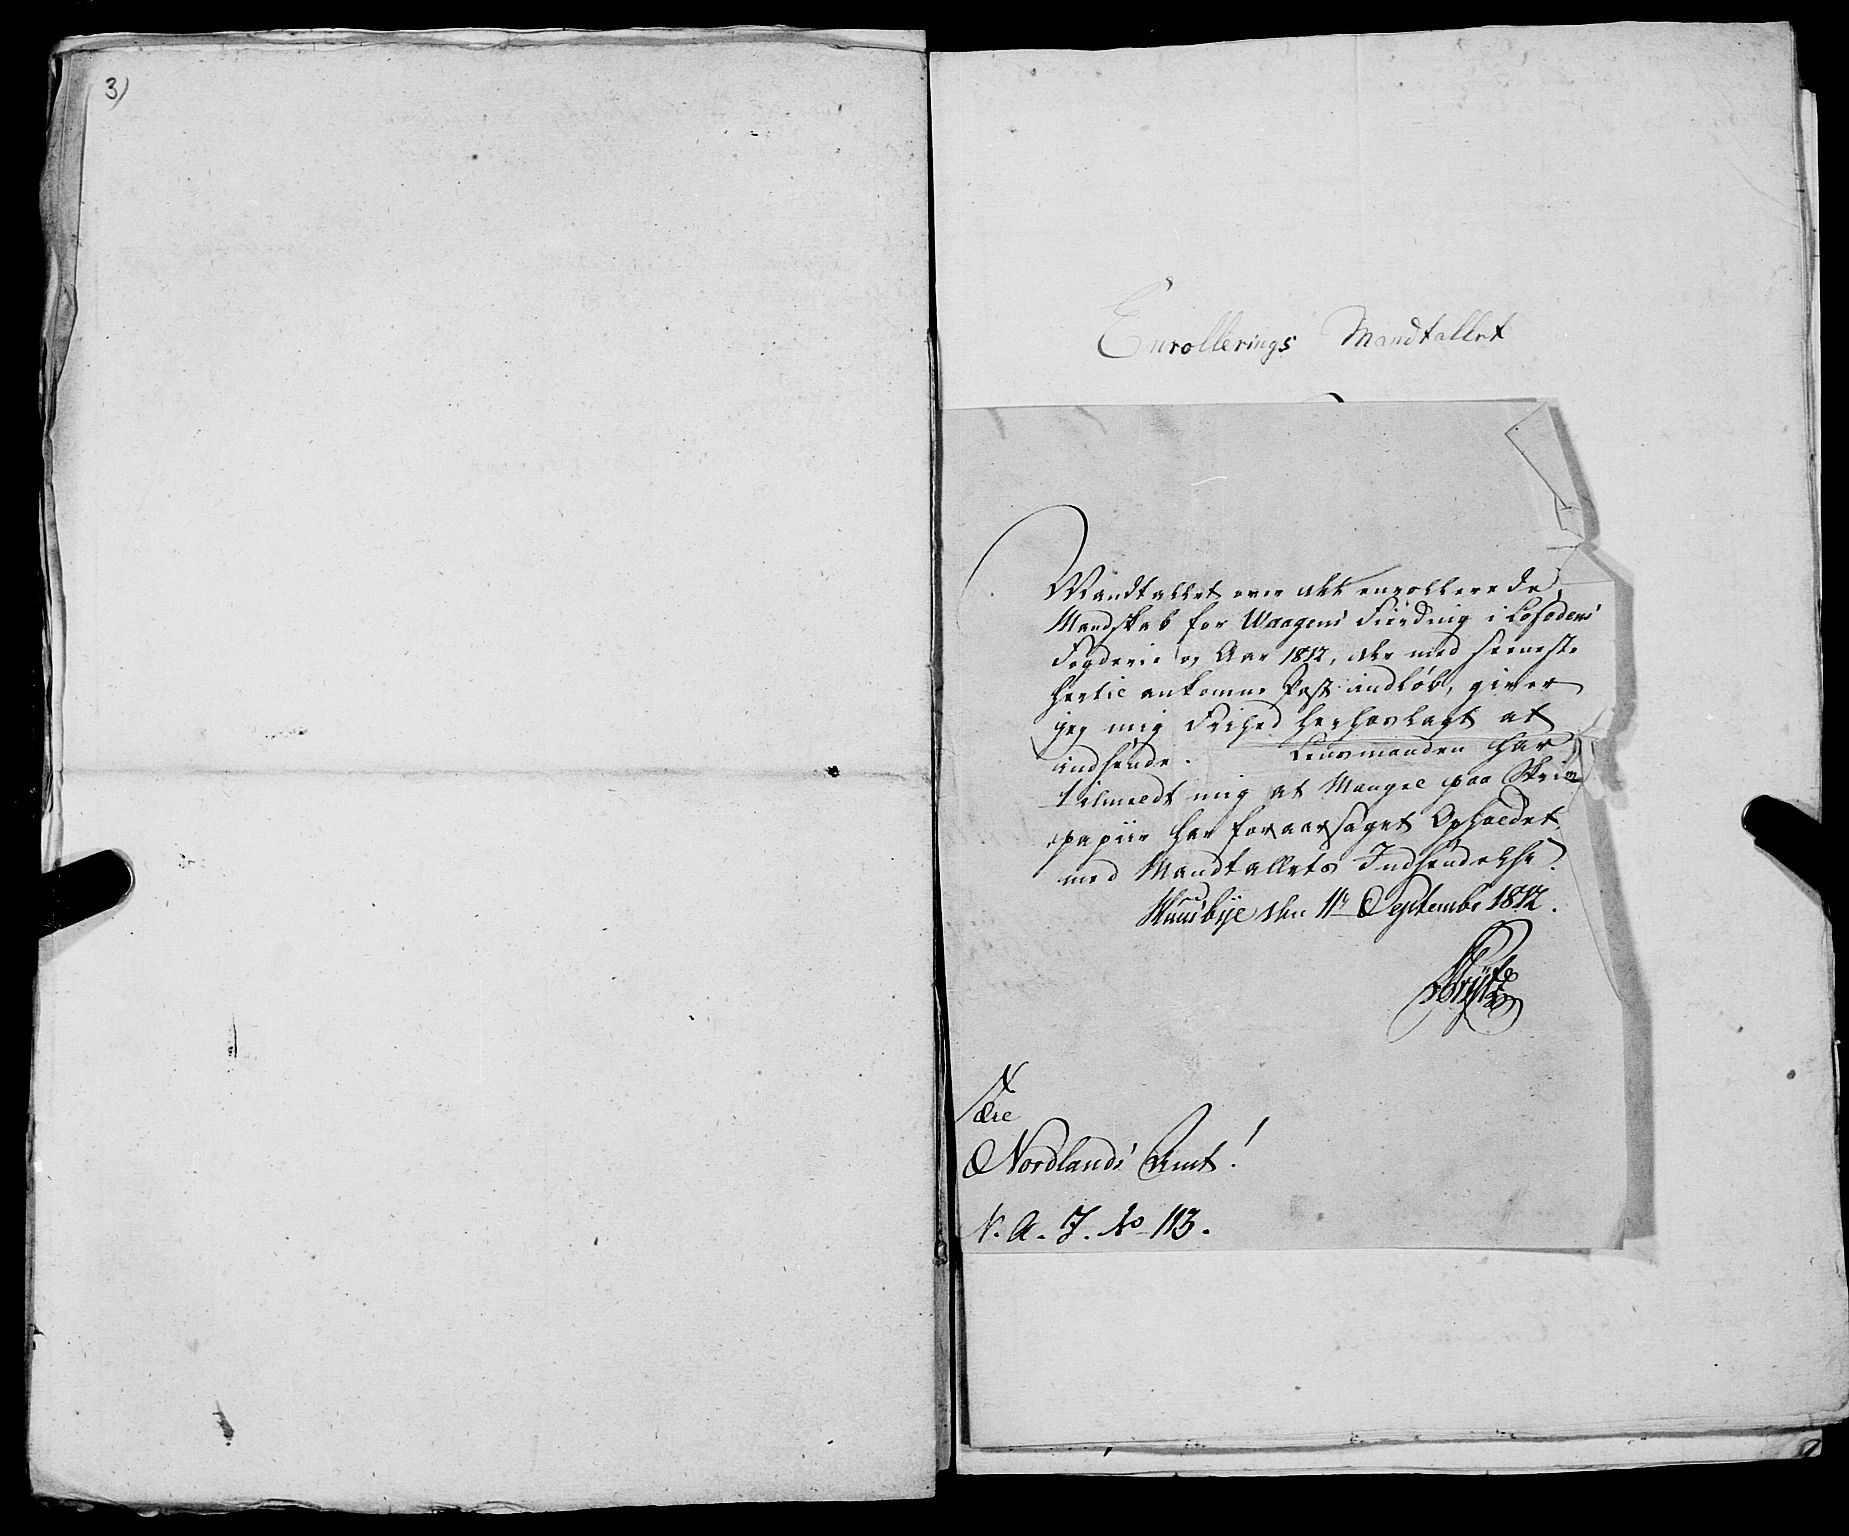 3)
Enrollerings Mandtallet
Mandtallet over det enrollerede
Mandskab for Waagens Fierding i Lofodens
Fogderie og Aar 1812, der med seeneste
hertil ankomne Post indløb, giver
jeg mig Frihed herhos lagt at
indsende. Lensmanden har
tilmeldt mig at Mangel paa Skriv
papiir har foraarsaget Opholdet
med Mandtallets Indsendelse.
Huusbye den 11te September 1812.
Til
Nordlands Amt!
N. A. J. No 113.